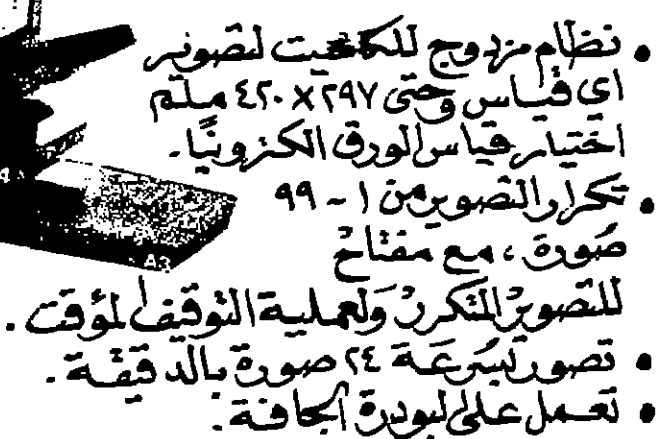 • نظام مزدوج للكاسيت لتصوير
اي قياس وحتى ٢٩٧ × ٤٢٠ ملم
اختيار قياس الورق الكترونيًا.
• تكرار التصوير من ١ - ٩٩
صورة، مع مفتاح
للتصوير المتكرر ولعملية التوقيف المؤقت.
• تصور بسرعة ٢٤ صورة بالدقيقة.
• تعمل على البودرة الجافة.
A3